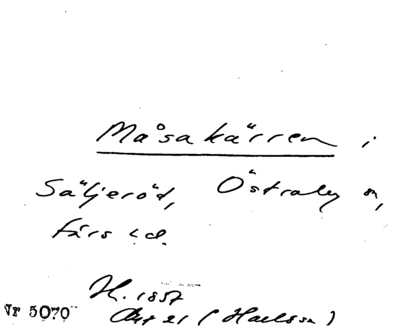 Måsakärren i
Säljeröd, Östraby sn,
Färs hd.
H. 1857
Akt 21 (Hallsson)
Nr 5070